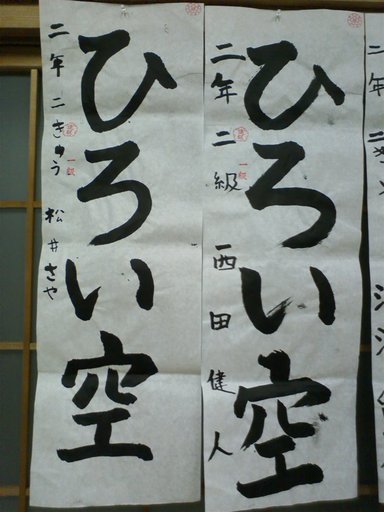 ひろい空
二年 二級 西田健人
一級
ひろい空
二年 二きゅう 松井さや
一級
二年 二